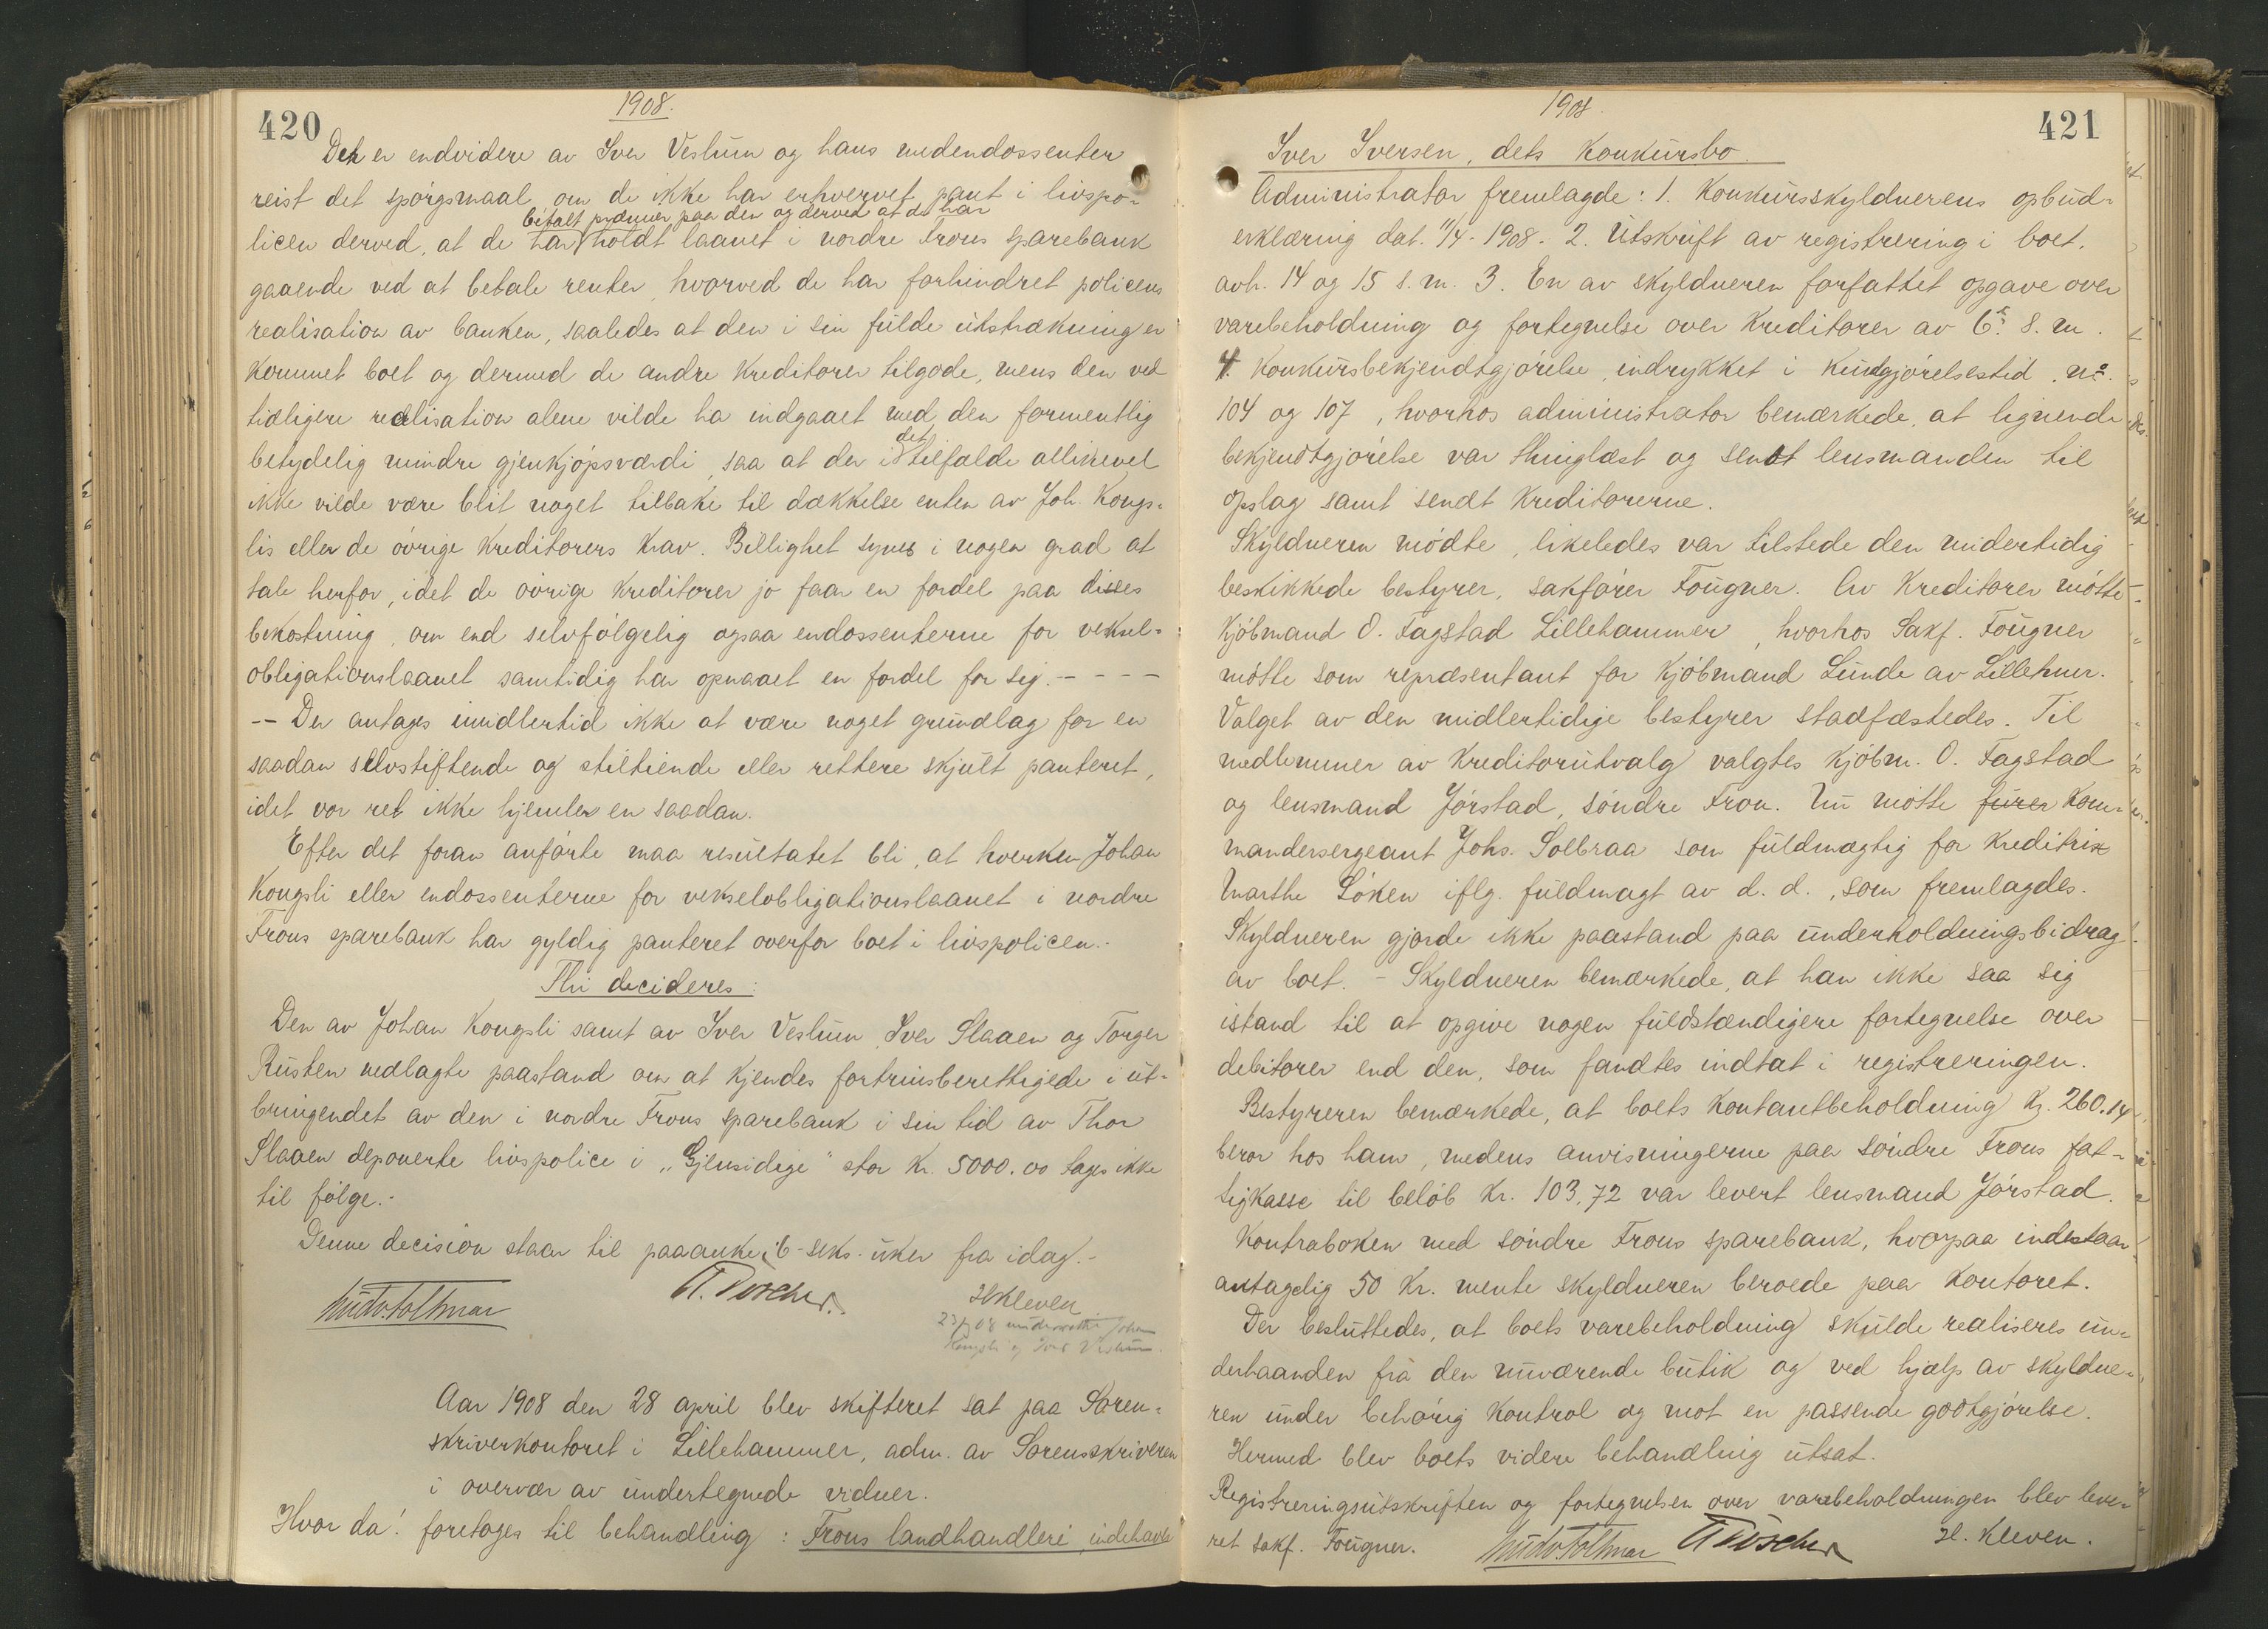 420
1908.
Det er endvidere av Iver Veslum og hans medendossenter
reist det spörgsmaal, om de ikke har erhvervet pant i livspo-
betalt præmier paa den og derved at de har
licen derved, at de har holdt laanet i nordre Frons sparebank
gaaende ved at betale renter, hvorved de har forhindret policens
realisation av banken, saaledes at den i sin fulde utstrækning er
kommet boet og dermed de andre kreditorer tilgode, mens den ved
tidligere realisation alene vilde ha indgaaet med den formentlig
det
betydelig mindre gjenkjöpsværdi, saa at der i tilfælde allikevel
ikke vilde være blit noget tilbake til dækkelse enten av Joh. Kongs-
lis eller de övrige kreditorers krav. Billighet synes i nogen grad at
tale herfor, idet de övrige kreditorer jo faar en fordel paa disses
bekostning, om end selvfölgelig ogsaa endossenterne for veksel-
obligationslaanet samtidig har opnaaet en fordel for sig. - - - -
-- Der antages imidlertid ikke at være noget grundlag for en
saadan selvstiftende og stiltiende eller rettere skjult panteret,
idet vor ret ikke hjemler en saadan.
Efter det foran anförte maa resultatet bli, at hverken Johan
Kongsli eller endossenterne for vekselobligationslaanet i nordre
Frons sparebank har gyldig panteret overfor boet i livspolicen.-
Thi decideres:
Den av Johan Kongsli samt av Iver Veslum, Iver Slaaen og Torger
Rusten nedlagte paastand om at kjendes fortrinsberettigede i ut-
bringendet av den i nordre Frons sparebank i sin tid av Thor
Slaaen deponerte livspolice i „Gjensidige" stor Kr. 5000.00 tages ikke
til fölge.-
Denne decision staar til paaanke i 6 - seks - uker fra idag.-
H Kleven
Aar 1908 den 28 april blev skifteret sat paa Soren-
skriverkontoret i Lillehammer, adm. av Sorenskriveren
i overvær av undertegnede vidner.
Hvor da! foretages til behandling: Frons landhandleri, indehaver
1908.
421
Iver Iversen, dets konkursbo.
Administrator fremlagde: 1. Konkursskyldnerens opbud-
erklæring dat. 11/4-1908. 2. Utskrift av registrering i boet,
avh. 14 og 15 s.m. 3. En av skyldneren forfattet opgave over
varebeholdning og fortegnelse over kreditorer av 6t. s.m.
4. Konkursbekjendtgjörelse, indrykket i Kundgjörelsestid. No.
104 og 107, hvorhos administrator bemærkede, at lignende
bekjendtgjörelse var thinglæst og sendt lensmanden til
opslag samt sendt kreditorerne.
Skyldneren mödte, likeledes var tilstede den midertidig
beskikkede bestyrer, sakförer Fougner. Av kreditorer mötte
Kjöbmand O. Fagstad Lillehammer, hvorhos Sakf. Fougner
mötte som repræsentant for Kjöbmand Lunde av Lillehmr.
Valget av den midlertidige bestyrer stadfæstedes. Til
medlemmer av kreditorutvalg valgtes Kjöbm. O. Fagstad
og lensmand Jörstad, söndre Fron. Nu mötte furer kom-
mandersergeant Johs. Solbraa som fuldmægtig for kreditrix
Marthe Löken iflg. fuldmagt av d. d., som fremlagdes.
Skyldneren gjorde ikke paastand paa underholdningsbidrag
av boet. - Skyldneren bemærkede, at han ikke saa sig
istand til at opgive nogen fuldstændigere fortegnelse over
debitorer end den, som fandtes indtat i registreringen.
Bestyreren bemærkede, at boets kontantbeholdning Kr. 260.14
beror hos ham, medens anvisningerne paa söndre Frons fat-
tigkasse til belöb Kr. 103,72 var levert lensmand Jörstad.
Kontraboken med söndre Frons sparebank, hvorpaa indestaar
antagelig 50 Kr. mente skyldneren beroede paa kontoret.
Der besluttedes, at boets varebeholdning skulde realiseres un-
derhaanden fra den nuværende butik og ved hjælp av skyldne-
ren under behörig kontrol og mot en passende godtgjörelse.
Hermed blev boets videre behandling utsat.
Registreringsutskriften og fortegnelsen over varebeholdningen blev leve-
ret sakf. Fougner.
H. Kleven.